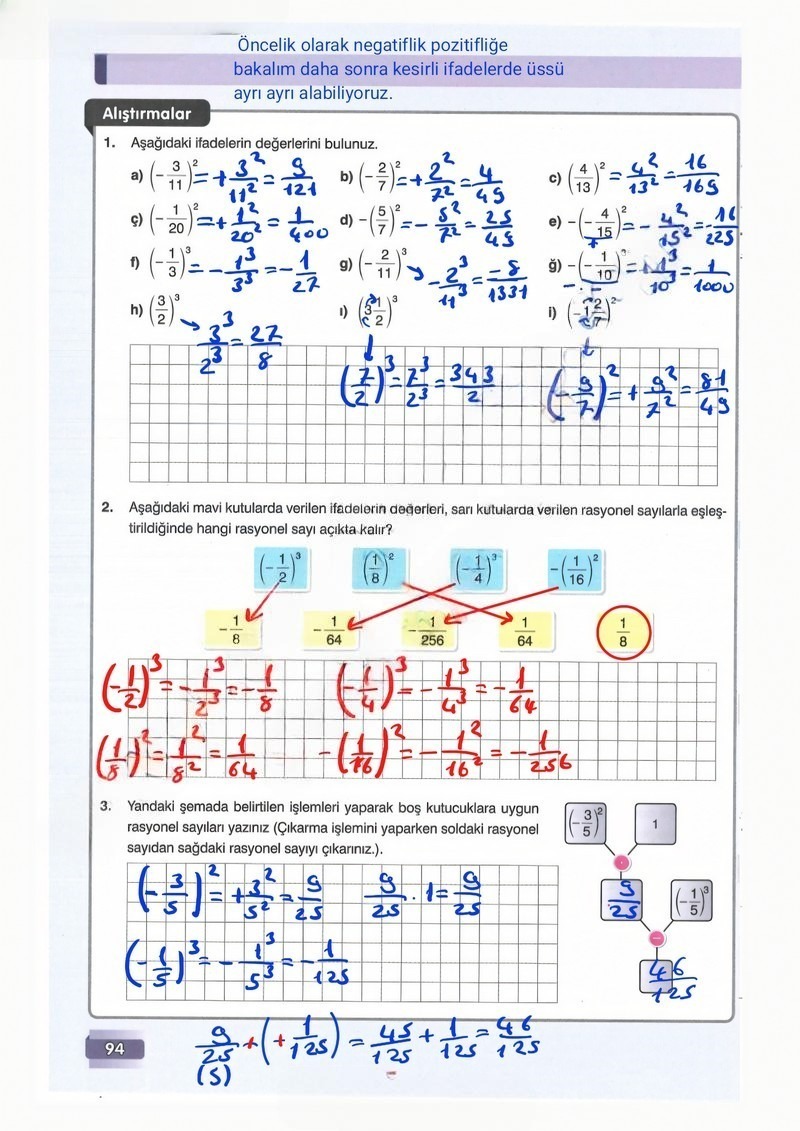 Öncelik olarak negatiflik pozitifliğe
bakalım daha sonra kesirli ifadelerde üssü
ayrı ayrı alabiliyoruz.
Alıştırmalar
1. Aşağıdaki ifadelerin değerlerini bulunuz.
a) (-3/11)² = +3²/11² = 9/121 b) (-2/7)² = +2²/7² = 4/49 c) (4/13)² = 4²/13² = 16/169
ç) (-1/20)² = +1²/20² = 1/400 d) -(5/7)² = -5²/7² = 25/49 e) -(-4/15)² = -4²/15² = -16/225
f) (-1/3)³ = -1³/3³ = -1/27 g) (-2/11)³ → -2³/11³ = -8/1331 ğ) -(-1/10)³ = 1³/10³ = 1/1000
h) (3/2)³ ı) (3 1/2)³ i) (-1 2/7)²
3³/2³ = 27/8 (7/2)³ = 7³/2³ = 343/2 (-9/7)² = +9²/7² = 81/49
2. Aşağıdaki mavi kutularda verilen ifadelerin değerleri, sarı kutularda verilen rasyonel sayılarla eşleş-
tirildiğinde hangi rasyonel sayı açıkta kalır?
(-1/2)³ (1/8)² (-1/4)³ -(1/16)²
-1/8 -1/64 -1/256 1/64 1/8
(-1/2)³ = -1³/2³ = -1/8 (-1/4)³ = -1³/4³ = -1/64
(1/8)² = 1²/8² = 1/64 -(1/16)² = -1²/16² = -1/256
3. Yandaki şemada belirtilen işlemleri yaparak boş kutucuklara uygun
rasyonel sayıları yazınız (Çıkarma işlemini yaparken soldaki rasyonel
sayıdan sağdaki rasyonel sayıyı çıkarınız.).
(-3/5)² 1
·
9/25 (-1/5)³
-
46/125
(-3/5)² = +3²/5² = 9/25 9/25 . 1 = 9/25
(-1/5)³ = -1³/5³ = -1/125
9/25 + (+1/125) = 45/125 + 1/125 = 46/125
(5)
94